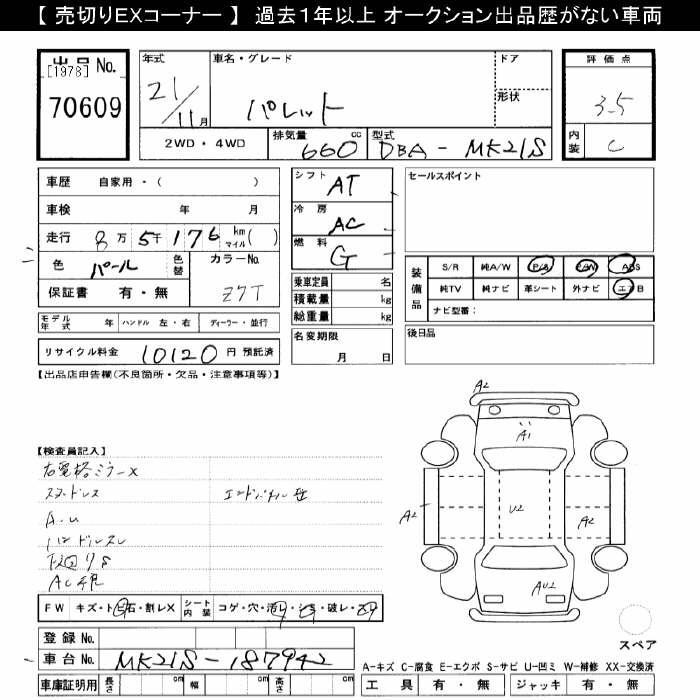 【 売切りEXコーナー 】 過去１年以上 オークション出品歴がない車両
出品 No.
[1978]
70609
年式
21/11月
車名・グレード
パレット
ドア
形状
評価点
3.5
内装
C
2WD・4WD
排気量 660 cc
型式 DBA - MK21S
車歴 自家用・( )
車検 年 月
走行 8万 5千 176 km マイル( )
色 パール 色替 カラーNo. Z7T
保証書 有・無
モデル年式 年 ハンドル 左・右 ディーラー・並行
リサイクル料金 10120 円 預託済
シフト AT
冷房 AC
燃料 G
乗車定員 名
積載量 kg
総重量 kg
名変期限
月 日
セールスポイント
装備品
S/R 純A/W P/S P/W ABS
純TV 純ナビ 革シート 外ナビ エアB
ナビ型番：
後日品
【出品店申告欄(不良箇所・欠品・注意事項等)】
【検査員記入】
右電格ミラーX
A2
A1
A2
U2
A2
AU2
FW キズ・トビ石・割レX シート内装 コゲ・穴・汚レ・シミ・破レ・スレ
登録 No.
車台 No. MK21S-187942
車庫証明用 長さ cm 幅 cm 高さ cm
スペア
A-キズ C-腐食 E-エクボ S-サビ U-凹ミ W-補修 XX-交換済
工具 有・無 ジャッキ 有・無